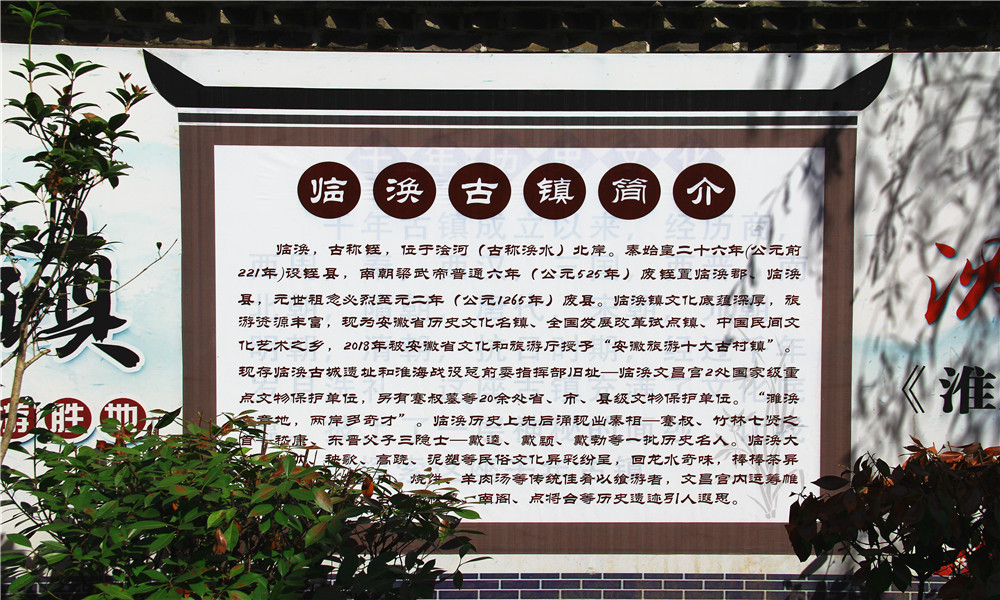 临涣古镇简介
临涣，古称铚，位于浍河（古称涣水）北岸。秦始皇二十六年(公元前
221年)设铚县，南朝梁武帝普通六年（公元525年）废铚置临涣郡、临涣
县，元世祖忽必烈至元二年（公元1265年）废县。临涣镇文化底蕴深厚，旅
游资源丰富，现为安徽省历史文化名镇、全国发展改革试点镇、中国民间文
化艺术之乡，2018年被安徽省文化和旅游厅授予“安徽旅游十大古村镇”。
现存临涣古城遗址和淮海战役总前委指挥部旧址—临涣文昌宫2处国家级重
点文物保护单位，另有蹇叔墓等20余处省、市、县级文物保护单位。“濉涣
章地，两岸多奇才”。临涣历史上先后涌现出秦相—蹇叔、竹林七贤之
首—嵇康、东晋父子三隐士—戴逵、戴颙、戴勃等一批历史名人。临涣大
秧歌、高跷、泥塑等民俗文化异彩纷呈，回龙水奇味，棒棒茶异
烧饼、羊肉汤等传统佳肴以飨游者，文昌宫内运筹帷
南阁、点将台等历史遗迹引人遐思。
镇
海胜地
涣
《淮